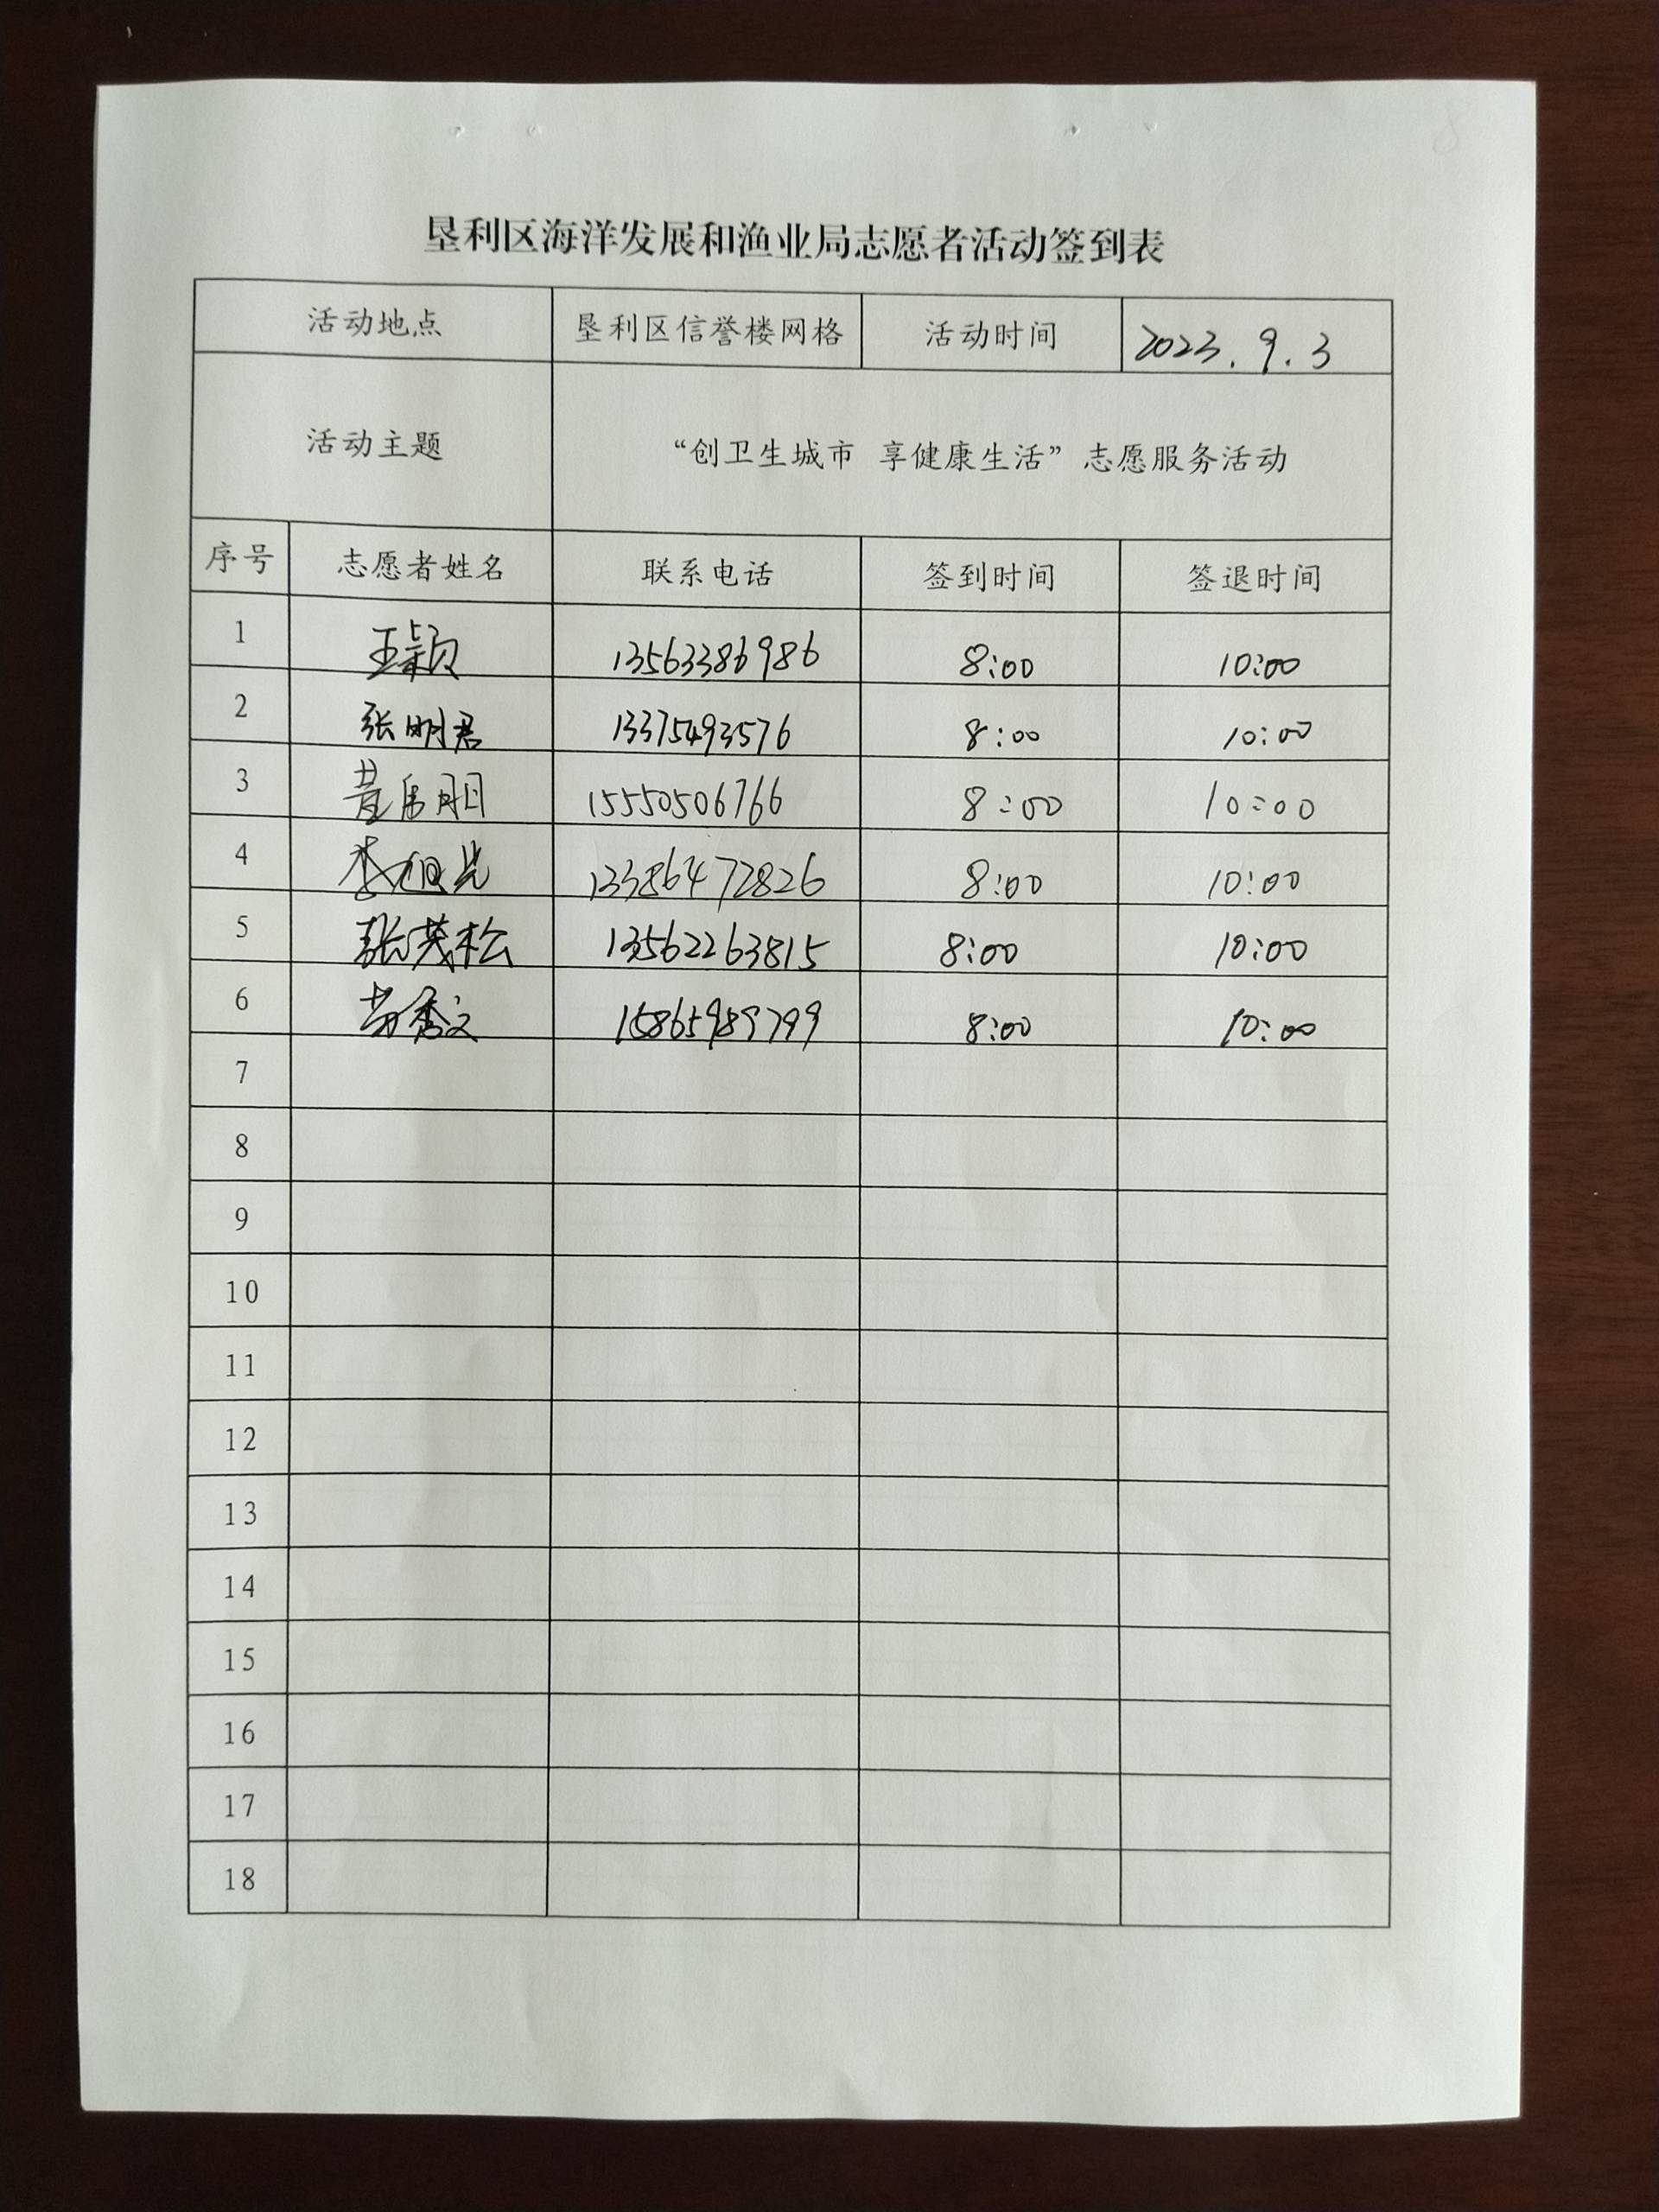 垦利区海洋发展和渔业局志愿者活动签到表
活动地点 垦利区信誉楼网格 活动时间 2023.9.3
活动主题 “创卫生城市 享健康生活”志愿服务活动
序号 志愿者姓名 联系电话 签到时间 签退时间
1 王颖 13563386986 8:00 10:00
2 张明君 13375493576 8:00 10:00
3 15550506766 8:00 10:00
4 李旭光 8:00 10:00
5 张茂松 13562263815 8:00 10:00
6 苗秀文 15865989799 8:00 10:00
7
8
9
10
11
12
13
14
15
16
17
18